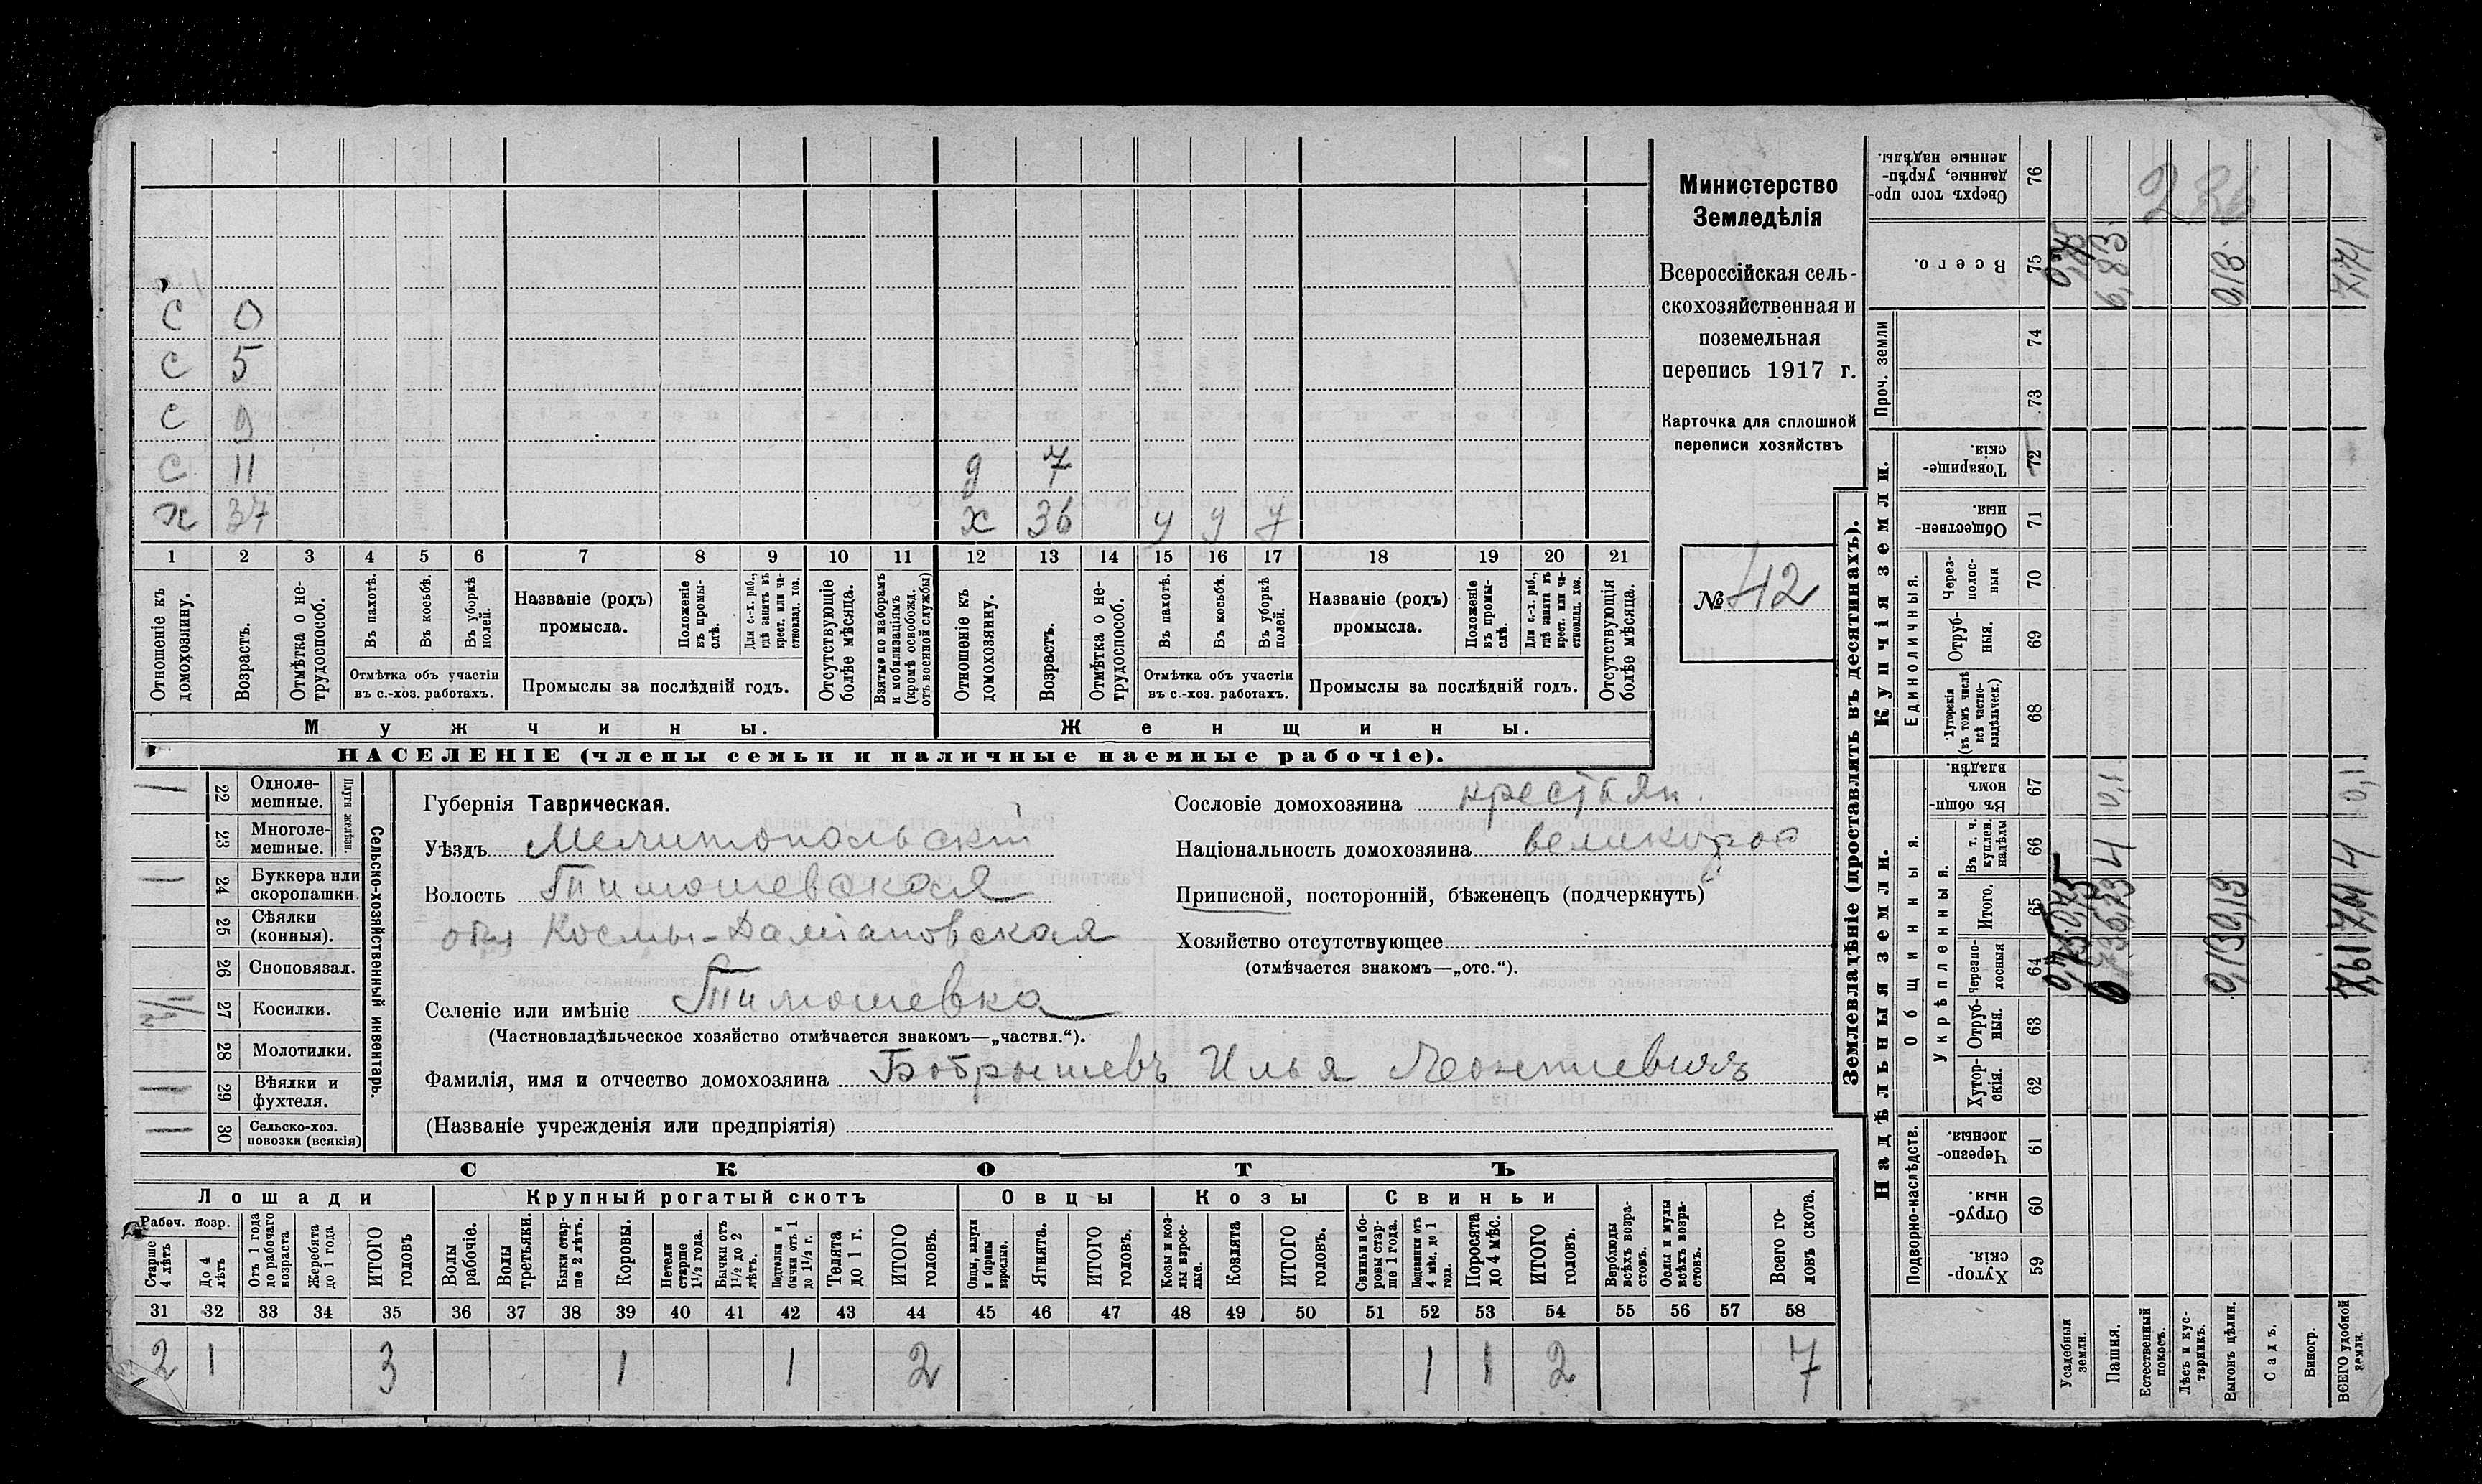 Министерство
Земледѣлія
Всероссійская сель-
скохозяйственная и
поземельная
перепись 1917 г.
Карточка для сплошной
переписи хозяйствъ
№ 42
С 0
С 5
С 9
С 11 д 7
х 37 х 36 у у у
1 2 3 4 5 6 7 8 9 10 11 12 13 14 15 16 17 18 19 20 21
Отношеніе къ домохозяину.
Возрастъ.
Отмѣтка о не-трудоспособ.
Въ пахотѣ.
Въ косьбѣ.
Въ уборкѣ полей.
Отмѣтка объ участіи
въ с.-хоз. работахъ.
Названіе (родъ)
промысла.
Положеніе въ промы-слѣ.
Для с.-х. раб., гдѣ занятъ въ крест. или ча-стновлад. хоз.
Промыслы за послѣдній годъ.
Отсутствующіе болѣе мѣсяца.
Взятые по наборамъ и мобилизаціямъ (кромѣ освобожд. отъ военной службы)
Отношеніе къ домохозяину.
Возрастъ.
Отмѣтка о не-трудоспособ.
Въ пахотѣ.
Въ косьбѣ.
Въ уборкѣ полей.
Отмѣтка объ участіи
въ с.-хоз. работахъ.
Названіе (родъ)
промысла.
Положеніе въ промы-слѣ.
Для с.-х. раб., гдѣ занята въ крест. или ча-стновлад. хоз.
Промыслы за послѣдній годъ.
Отсутствующія болѣе мѣсяца.
Мужчины. Женщины.
НАСЕЛЕНІЕ (члены семьи и наличные наемные рабочіе).
Сельско-хозяйственный инвентарь.
Плуги желѣзн.
22 Одноле-мешные.
23 Многоле-мешные.
24 Буккера или скоропашки
25 Сѣялки (конныя).
26 Сноповязал.
27 Косилки.
28 Молотилки.
29 Вѣялки и фухтеля.
30 Сельско-хоз. повозки (всякія)
Губернія Таврическая.
Уѣздъ Мелитопольскій
Волость Тимошевская
Космы-Даміановская
Селеніе или имѣніе Тимошевка
(Частновладѣльческое хозяйство отмѣчается знакомъ—„частвл.“).
Фамилія, имя и отчество домохозяина Бобрышевъ Илья Леонтиевичъ
(Названіе учрежденія или предпріятія)
Сословіе домохозяина крестьян.
Національность домохозяина великорос
Приписной, посторонній, бѣженец (подчеркнуть)
Хозяйство отсутствующее
(отмѣчается знакомъ—„отс.“).
СКОТЪ
Лошади Крупный рогатый скотъ Овцы Козы Свиньи
Рабоч. возр.
Старше 4 лѣтъ
До 4 лѣтъ
Отъ 1 года до рабочаго возраста
Жеребята до 1 года
ИТОГО головъ
Волы рабочіе.
Волы третьяки.
Быки стар-ше 2 лѣтъ.
Коровы.
Нетели старше 1½ года.
Бычки отъ 1½ до 2 лѣтъ.
Подтелки и бычки отъ 1 до 1½ г.
Телята до 1 г.
ИТОГО головъ.
Овцы, валухи и бараны взрослые.
Ягнята.
ИТОГО головъ.
Козы и коз-лы взрос-лые.
Козлята
ИТОГО головъ.
Свиньи и бо-ровы стар-ше 1 года.
Подсвинки отъ 4 мѣс. до 1 года.
Поросята до 4 мѣс.
ИТОГО головъ.
Верблюды всѣхъ возра-стовъ.
Ослы и мулы всѣхъ возра-стовъ.
Всего го-ловъ скота.
31 32 33 34 35 36 37 38 39 40 41 42 43 44 45 46 47 48 49 50 51 52 53 54 55 56 57 58
2 1 3 1 1 2 1 1 2 7
Землевладѣніе (проставлять въ десятинахъ).
Надѣльныя земли.
Купчія земли.
Проч. земли
Подворно-наслѣдств.
Общинныя.
Укрѣпленныя.
Единоличныя.
59 Хутор-скія
60 Отруб-ныя.
61 Черезпо-лосныя
62 Хутор-скія.
63 Отруб-ныя.
64 Черезпо-лосныя
65 Итого.
66 Въ т. ч. куплен. надѣлы
67 Въ общин-номъ владѣн.
68 Хуторскія (въ томъ числѣ всѣ частно-владѣльческ.)
69 Отруб-ныя.
70 Через-полос-ныя
71 Обществен-ныя.
72 Товарище-скія
73
74
75 Всего.
76 Сверхъ того про-данные, укрѣп-ленные надѣлы.
Усадебныя земли.
Пашня.
Естественный покосъ.
Лѣсъ и кус-тарникъ.
Выгонъ цѣлин.
Садъ.
Виногр.
ВСЕГО удобной земли.
6,83
0,18
7,71
0,1
0,1
4
4
236